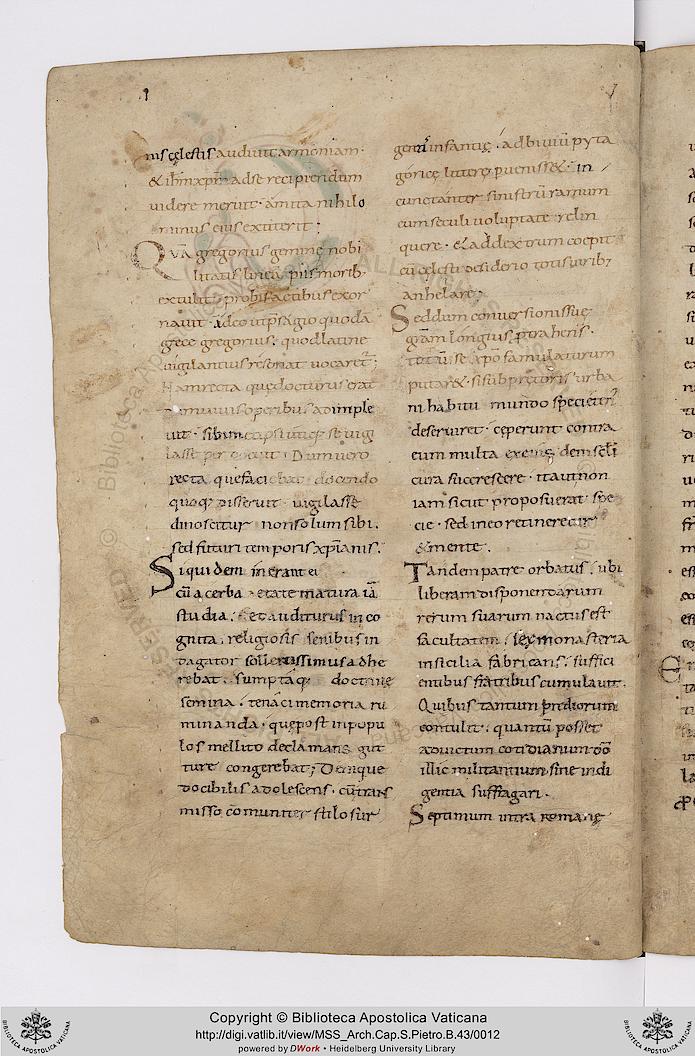 nis cęlestis audivit armoniam.
& ihm xpm ad se recipiendum
videre meruit. amita nihilo
minus eius extiterit;
Qua gregorius gemine nobi
litatis linea. piis morib;
extulit. probis actibus exor
navit. adeo ut psagio quoda
grece gregorius. quod latine
vigilantius resonat vocaret;
Nam recta que docturus erat
operibus adimple
vit. sibimet vigi
lasse Dum vero
recta que faciebat docendo
quoq; disseruit vigilasse
dinoscitur. non solum sibi.
sed futuri temporis xpianis.
Siquidem inerant ei
cu acerba etate matura ia
studia. et auditurus inco
gnita. religiosis senibus in
dagator sollertissimus adhe
rebat. sumptaq; doctrine
semina. tenaci memoria ru
minanda. que post in popu
los mellito declamans gut
ture congerebat; Denique
docibilis adolescens. cu trans
misso comuniter stilo sup
gemina infantie. ad bivium pyta
gorice littere puenisset. in
cunctanter sinistru ramum
cum seculi voluptate relin
quere. et ad dextrum coepit
cu celesti desiderio totis virib;
anhelare;
Sed dum conversionis sue
gram longius ptraheris.
tutiu se xpo famulaturum
putaret. si sub pretoris urba
ni habitu mundo specietenus
deserviret. ceperunt contra
eum multa ex eius dem scli
cura succrescere. ita ut non
iam sicut proposuerat spe
cie. sed in eo retineretur
& mente.
Tandem patre orbatus. ubi
liberam disponendarum
rerum suarum nactus est
facultatem. sex monasteria
in sicilia fabricans. suffici
entibus fratribus cumulavit.
Quibus tantum prediorum
contulit. quantu posset
ad victum cotidianum do
illic militantium sine indi
gentia suffragari.
Septimum intra romane
Copyright © Biblioteca Apostolica Vaticana
http://digi.vatlib.it/view/MSS_Arch.Cap.S.Pietro.B.43/0012
powered by DWork • Heidelberg University Library